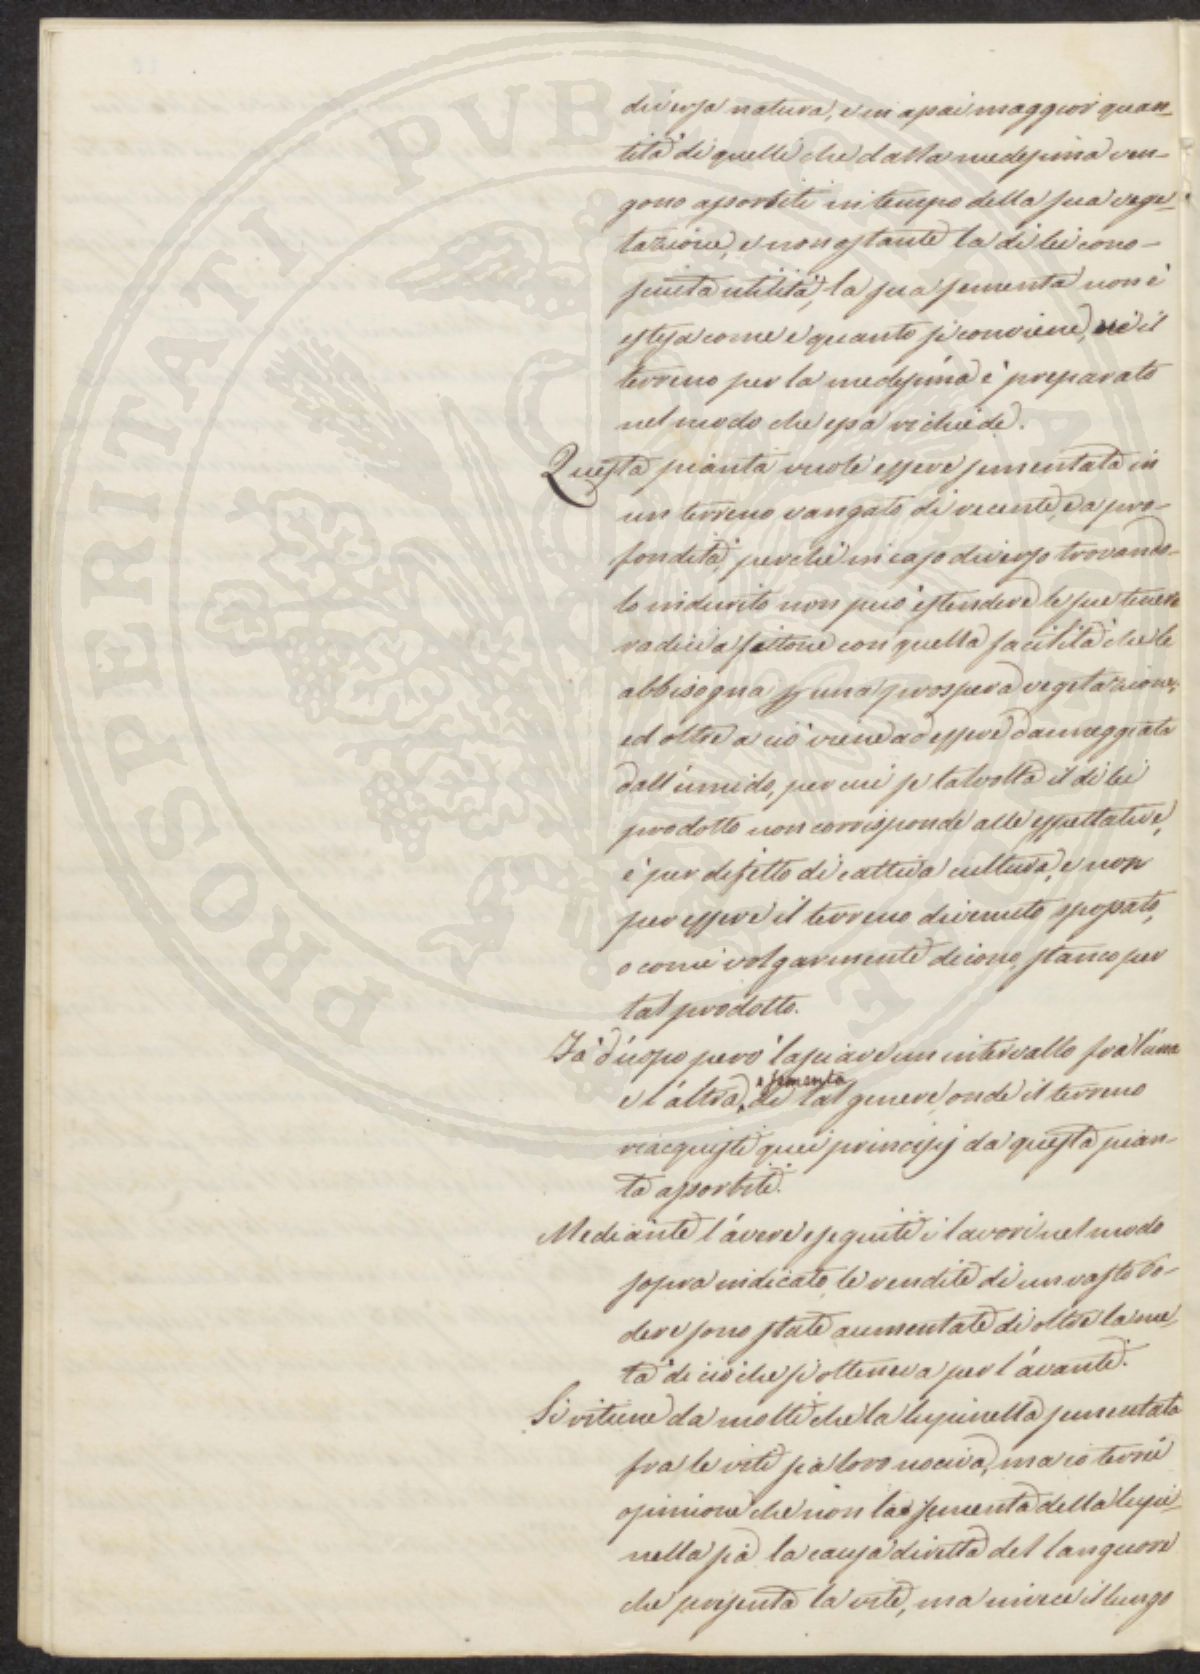 diversa natura, e in assai maggior quan-
tità di quelli che dalla medesima ven-
gono assorbiti in tempo della sua vege-
tazione, e non ostante la di lei cono-
sciuta utilità, la sua sementa non è
estesa come e quanto si conviene, nè il
terreno per la medesima è preparato
nel modo che essa richiede.
Questa pianta vuole essere sementata in
un terreno vangato di recente, e a pro-
fondità, perchè in caso diverso trovando-
lo indurito non può estendere le sue tenere
radici a fittone con quella facilità che le
abbisogna p una prospera vegetazione,
ed oltre a ciò viene ad essere danneggiata
dall'umido, per cui se talvolta il di lei
prodotto non corrisponde alle espettative,
è per difetto di cattiva cultura, e non
per essere il terreno divenuto spossato,
o come volgarmente dicono, stanco per
tal prodotto.
Fa d'uopo però lasciare un intervallo fra l'una
e l'altra sementa di tal genere, onde il terreno
riacquisti quei principj da questa pian-
ta assorbiti.
Mediante l'avere eseguiti i lavori nel modo
sopra indicato, le rendite di un vasto Po-
dere sono state aumentate di oltre la me-
tà di ciò che si otteneva per l'avanti.
Si ritiene da molti che la lupinella sementata
fra le viti sia loro nociva, ma io terrei
opinione che non la sementa della lupi-
nella sia la causa diretta del languore
che presenta la vite, ma invece il lungo